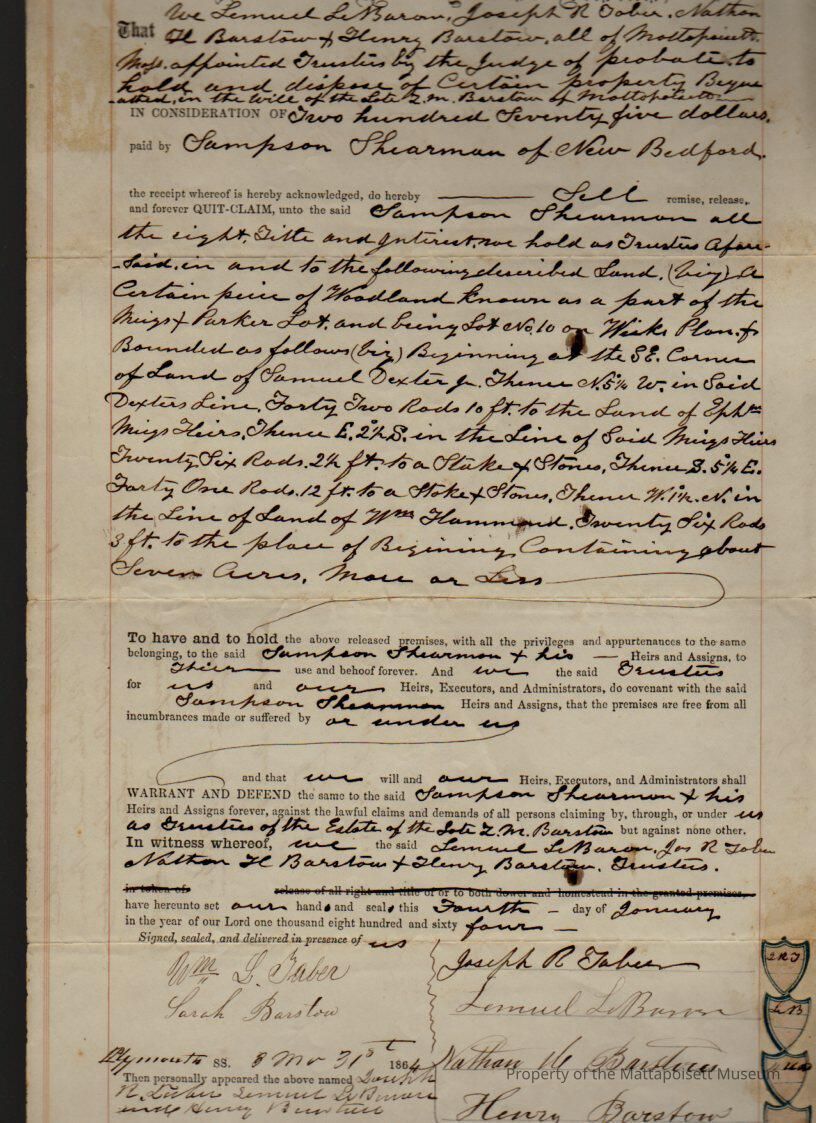 We Lemuel LeBaron, Joseph R Taber, Nathan
That H Barstow & Henry Barstow, all of Mattapoisett
Mass. appointed Trustees by the Judge of probate to
hold and dispose of Certain property Beque
-athed, in the Will of the Late Z. M. Barstow of Mattapoisett
IN CONSIDERATION OF Two hundred Seventy five dollars.
paid by Sampson Shearman of New Bedford.
the receipt whereof is hereby acknowledged, do hereby Sell remise, release,
and forever QUIT-CLAIM, unto the said Sampson Shearman all
the right, Title and Interest, we hold as Trustees Afore-
-Said, in and to the following described Land, (viz) A
Certain peice of Woodland Known as a part of the
Meigs & Parker Lot, and being Lot No. 10 on Wicks Plan. &
Bounded as follows (viz) Beginning at the S.E. Corner
of Land of Samuel Dexter Jr. Thence N. 5¼ W. in Said
Dexters Line, Forty Two Rods 10 ft. to the Land of Ephm
Meigs Heirs, Thence E. 2½ S. in the Line of Said Meigs Heirs
Twenty Six Rods. 2½ ft. to a Stake & Stones, Thence S. 5¼ E.
Forty One Rods. 12 ft. to a Stake & Stones, Thence W. 1½ N. in
the Line of Land of Wm Hammond, Twenty Six Rods
3 ft. to the place of Begining, Containing about
Seven Acres, More or Less
To have and to hold the above released premises, with all the privileges and appurtenances to the same
belonging, to the said Sampson Shearman & his Heirs and Assigns, to
Their use and behoof forever. And we the said Trustees
for us and our Heirs, Executors, and Administrators, do covenant with the said
Sampson Shearman Heirs and Assigns, that the premises are free from all
incumbrances made or suffered by or under us
and that we will and our Heirs, Executors, and Administrators shall
WARRANT AND DEFEND the same to the said Sampson Shearman & his
Heirs and Assigns forever, against the lawful claims and demands of all persons claiming by, through, or under us
as Trustees of the Estate of the late Z. M. Barstow but against none other.
In witness whereof, we the said Lemuel LeBaron, Jos R Taber
Nathan H Barstow & Henry Barstow, Trustees.
in token of release of all right and title of or to both dower and homestead in the granted premises,
have hereunto set our hands and seals this Fourth day of January
in the year of our Lord one thousand eight hundred and sixty four
Signed, sealed, and delivered in presence of us
Wm L. Taber
Joseph R Taber
J R T
Sarah Barstow
Lemuel LeBaron
L B
Plymouth SS. 3 Mo 31st 1864
Nathan H Barstow
Then personally appeared the above named Joseph
R. Taber Lemuel LeBaron
and Henry Barstow
Henry Barstow
Property of the Mattapoisett Museum